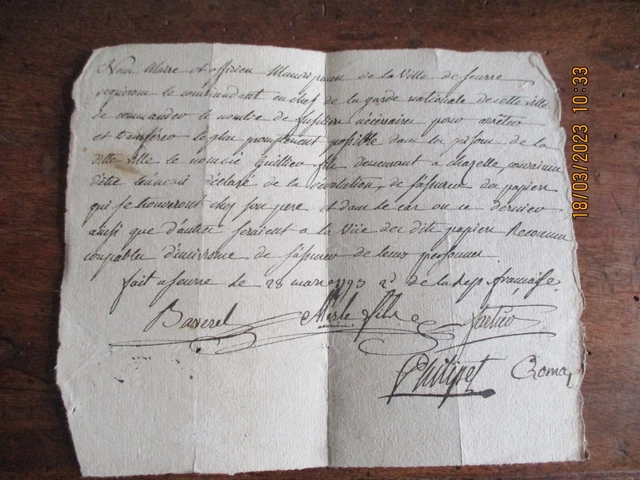 Nous Maire et officiers Municipaux de la Ville de seurre
requerons le commandant en chef de la garde nationale de cette ville
de commander le nombre de fusiliers nécessaires pour arreter
et transférer le plus promptement possible dans les prisons de la
ditte ville le nommé fils demeurant a chazelle, convaincu
d'etre Ennemi déclaré de la révolution, de s'assurer des papiers
qui se trouveront chez son pere et dans le cas ou ce dernier
ainsi que d'autres seraient a la Vüe des dits papiers Reconnu
coupables d'incivisme de s'assurer de leurs personnes
fait a seurre le 28 mars 1793 2e de la Rep française
Baverel Merle fils
Philipet
18/03/2023 10:33